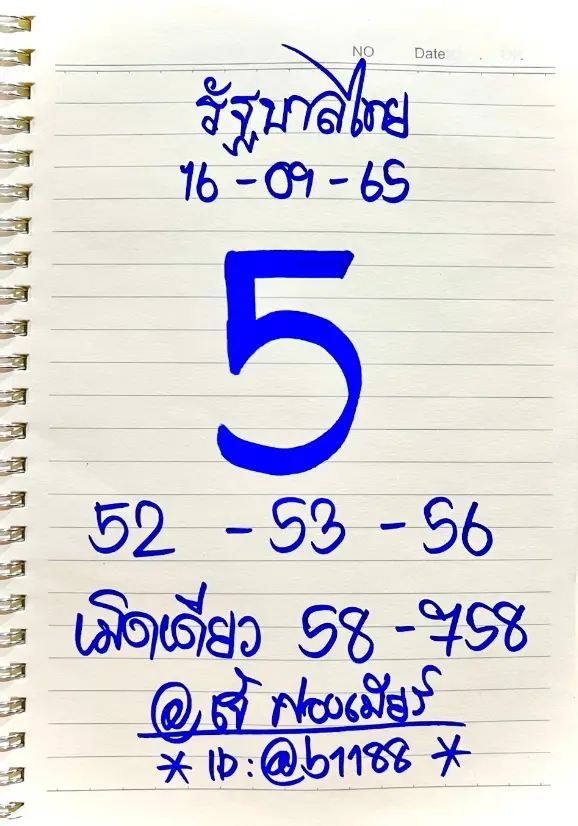 NO Date
รัฐบาลไทย
16 - 09 - 65
5
52 - 53 - 56
เม็ดเดียว 58 - 758
@ เจ๊ ฟองเบียร์
* ID : @b1188 *